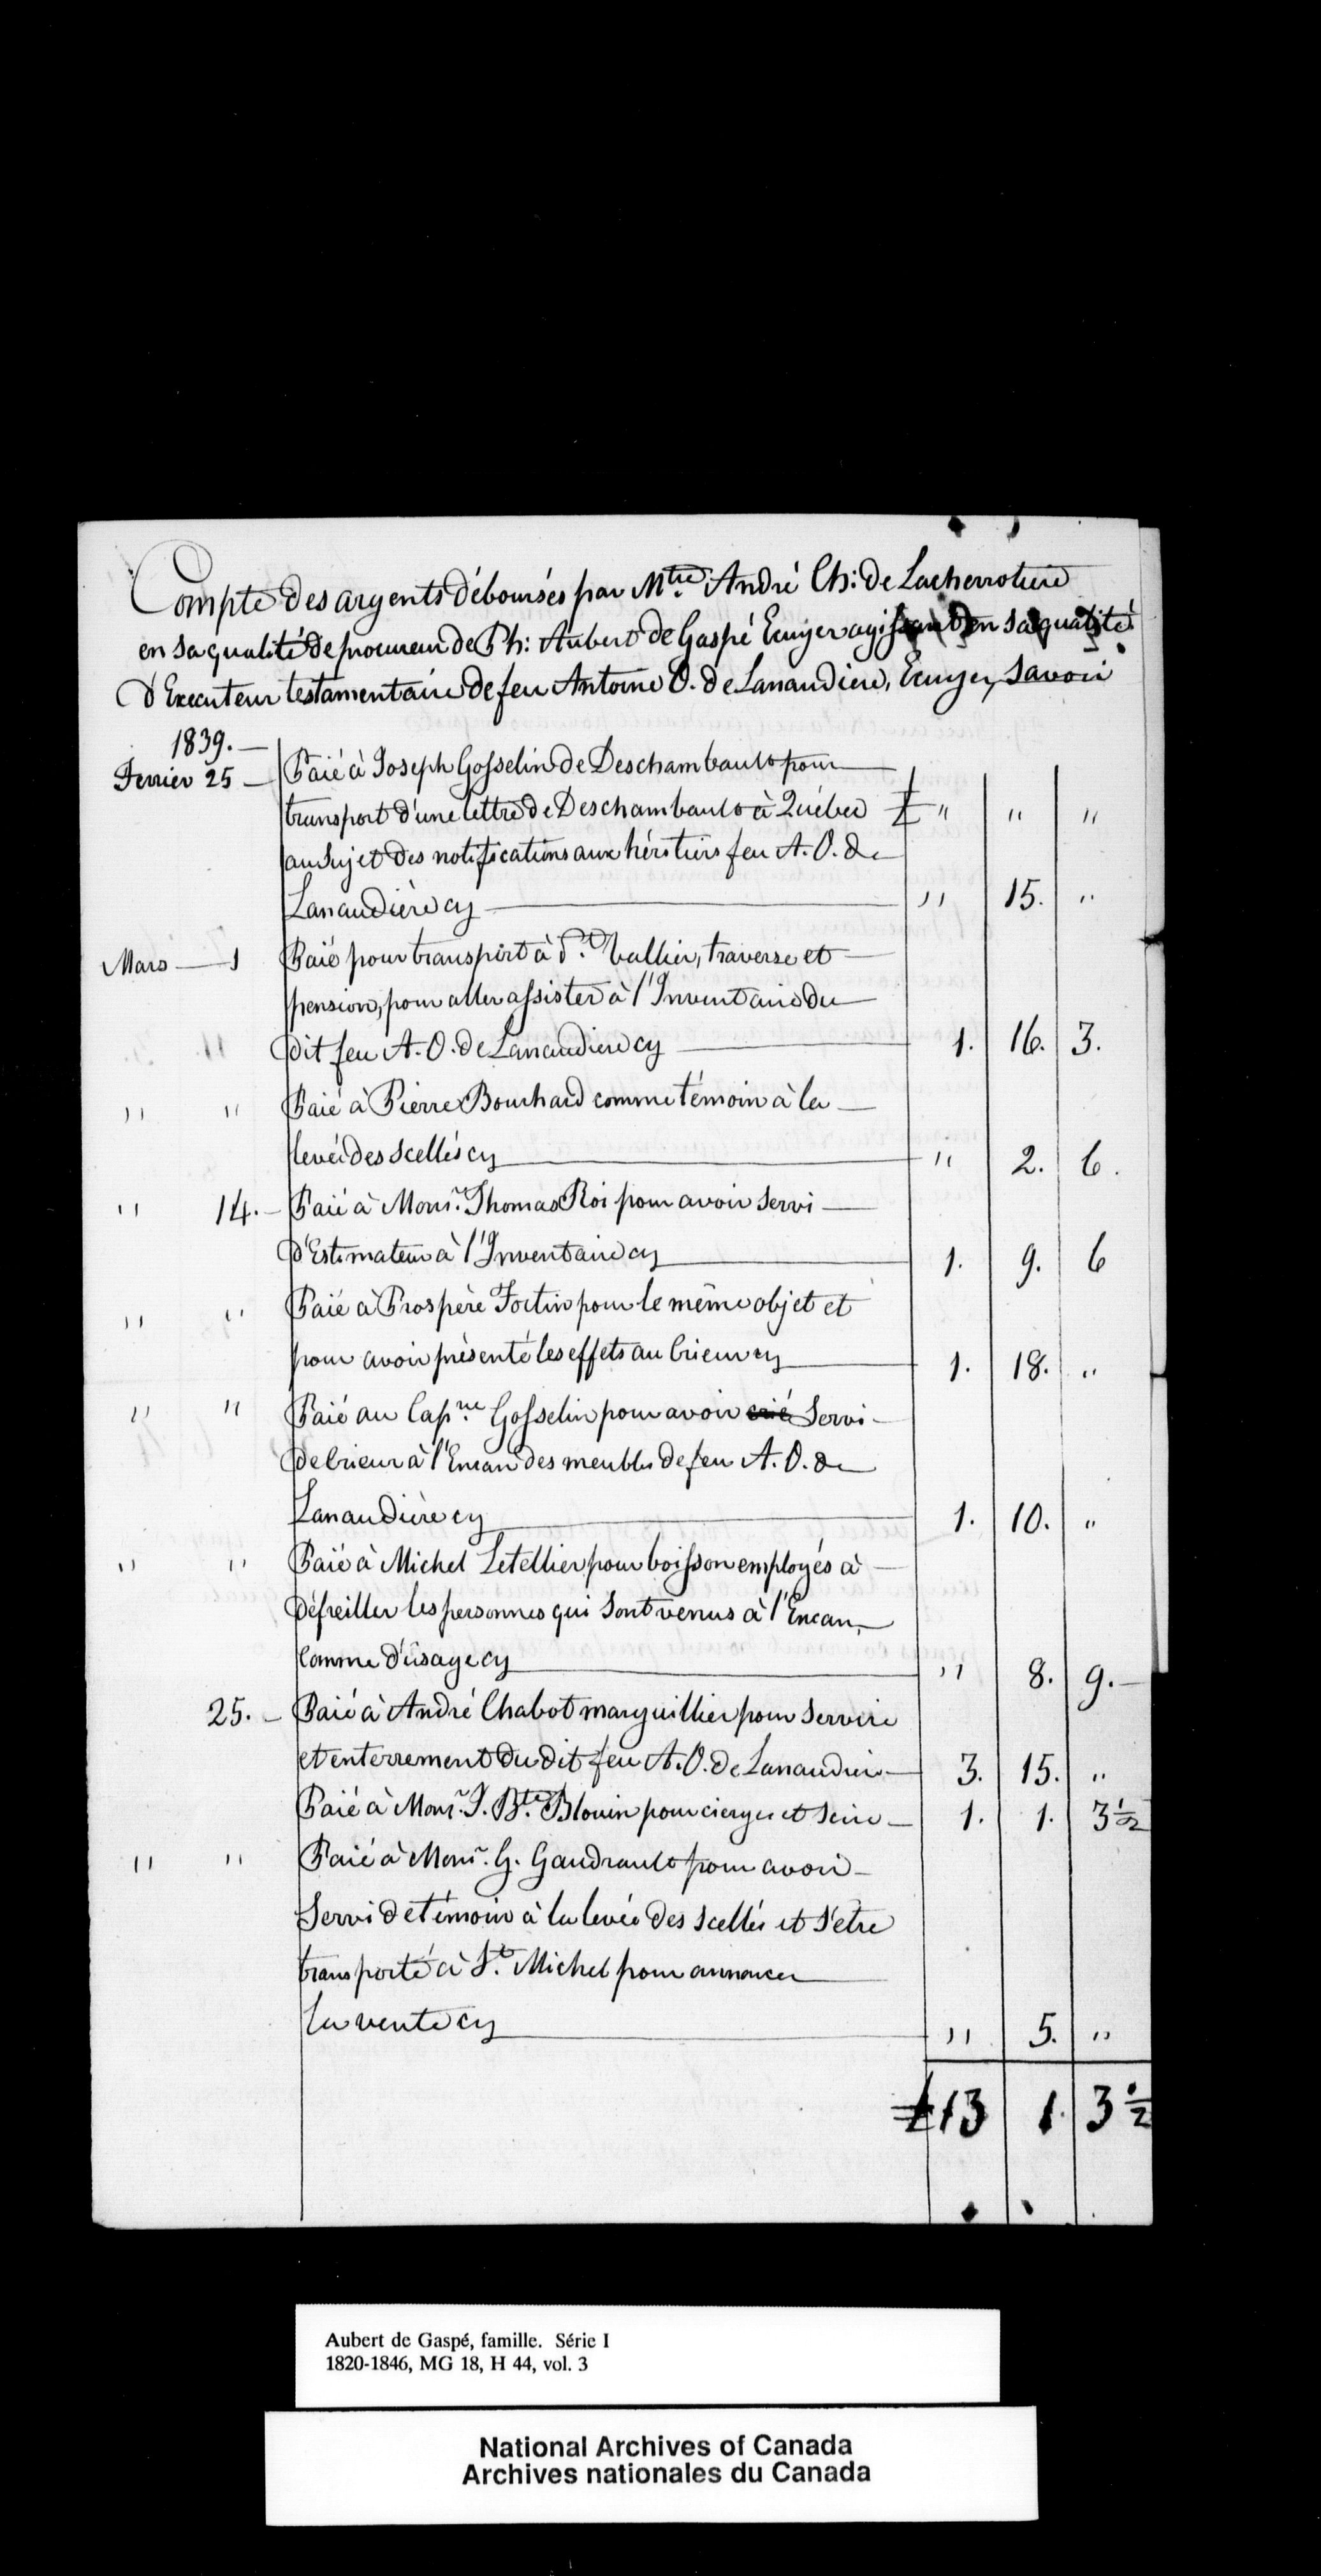 Compte des argents déboursés par Mtre André Ch: de Lacherrotiere
en sa qualité de procureur de Ph: Aubert de Gaspé Ecuyer agissant en sa qualité
d'Executeur testamentaire de feu Antoine O. de Lanaudiere, Ecuyer, Savoir
1839. —
Fevrier 25 — Paié à Joseph Gosselin de Deschambault pour
transport d'une lettre de Deschambault à Québec £ " " "
au Sujet des notifications aux héritiers feu A. O. de
Lanaudière cy — " 15. "
Mars — 1 Paié pour transport à St. Vallier, traverse et —
pension, pour aller assister à l'Inventaire du —
dit feu A. O. de Lanaudiere cy — 1. 16. 3.
" " Paié à Pierre Bouchard comme témoin à la —
levée des Scellés cy — " 2. 6.
" 14. — Paié à Monsr. Thomas Roi pour avoir Servi —
d'Estimateur à l'Inventaire cy — 1. 9. 6
" " Paié à Prospère Fortin pour le même objet et
pour avoir présenté les effets au Crieur cy — 1. 18. "
" " Paié au Capne. Gosselin pour avoir crié Servi —
de Crieur à l'Encan des meubles de feu A. O. de
Lanaudière cy — 1. 10. "
" " Paié à Michel Letellier pour boisson employés à —
défreiller les personnes qui Sont venus à l'Encan, —
Comme d'usage cy — " 8. 9. —
25. — Paié à André Chabot marguillier pour Service
et enterrement du dit feu A. O. de Lanaudiere — 3. 15. "
Paié à Monsr. J. Bte. Blouin pour cierges et Seire — 1. 1. 3 1/2
" " Paié à Monsr. G. Gaudrault pour avoir —
Servi de témoin à la levée des Scellés et S'etre
transporté à St. Michel pour annoncer —
la vente cy — " 5. "
£ 13 1. 3 1/2
Aubert de Gaspé, famille. Série I
1820-1846, MG 18, H 44, vol. 3
National Archives of Canada
Archives nationales du Canada